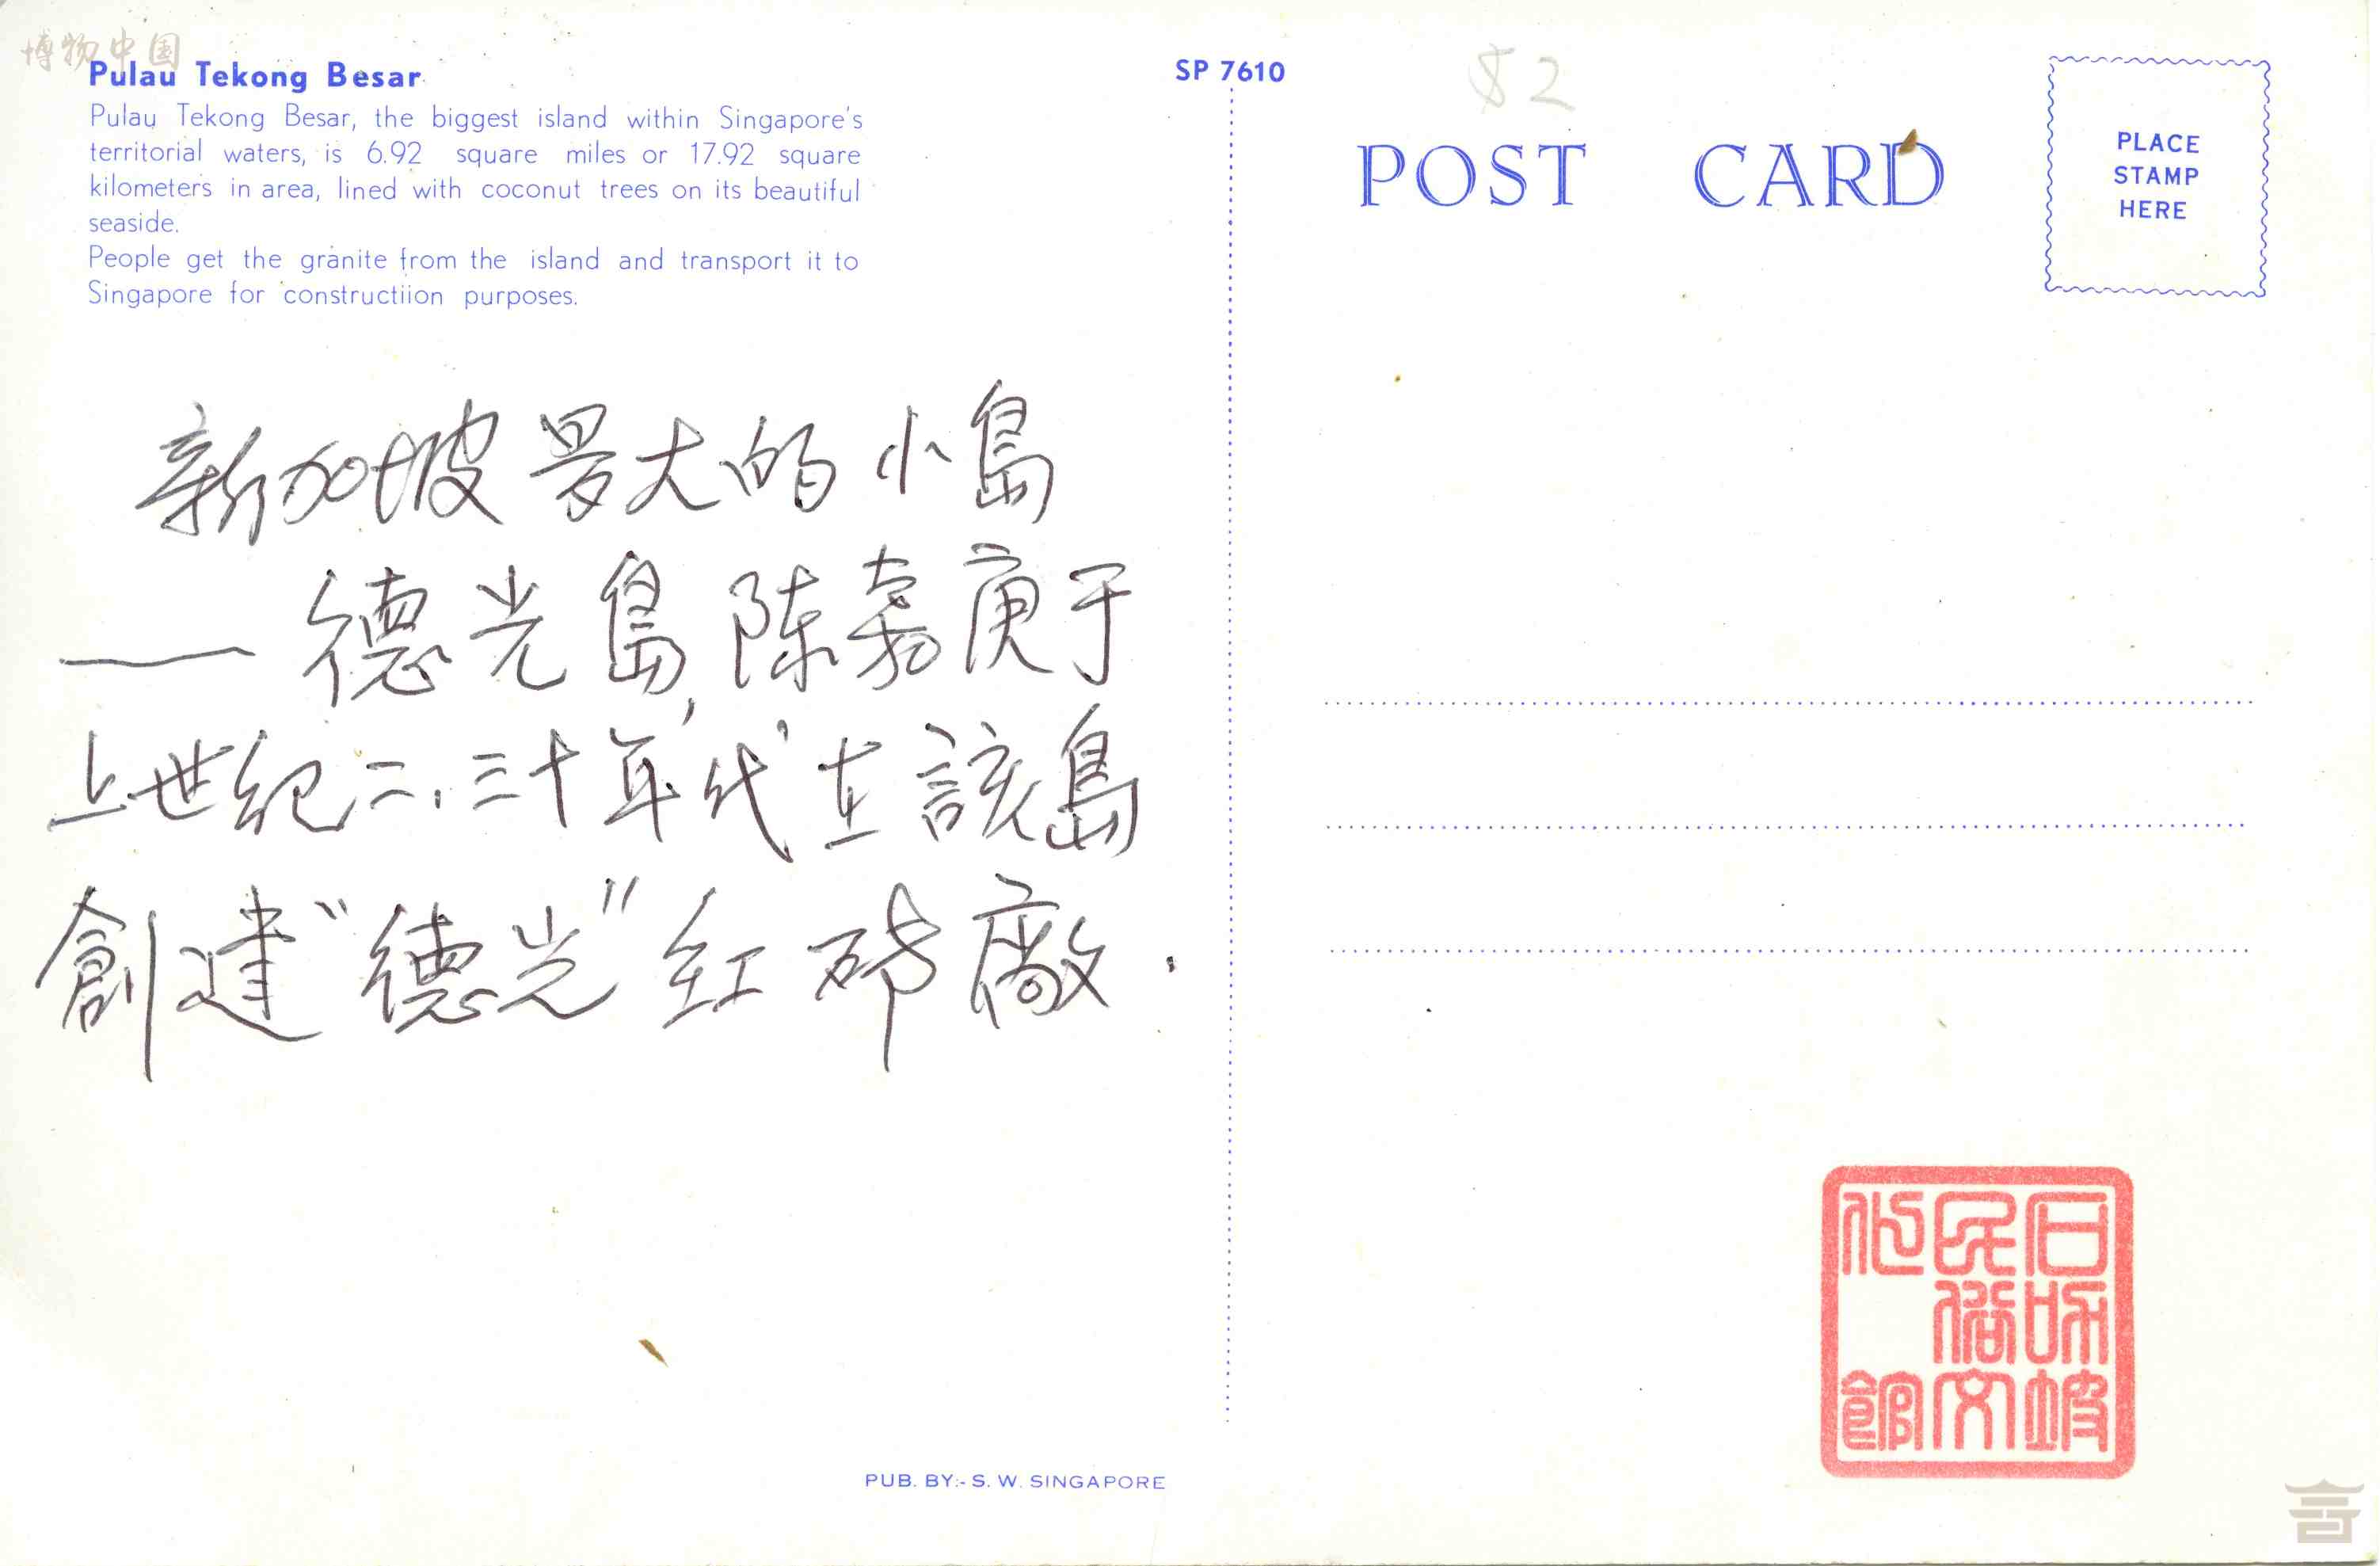 博物中国
Pulau Tekong Besar
Pulau Tekong Besar, the biggest island within Singapore's
territorial waters, is 6.92 square miles or 17.92 square
kilometers in area, lined with coconut trees on its beautiful
seaside.
People get the granite from the island and transport it to
Singapore for constructiion purposes.
新加坡最大的小島
——德光島,陈嘉庚于
上世紀二、三十年代,在該島
創建“德光”红砖廠.
PUB. BY:- S. W. SINGAPORE
SP 7610
$2
POST CARD
PLACE
STAMP
HERE
石叻坡
民俗文
化館